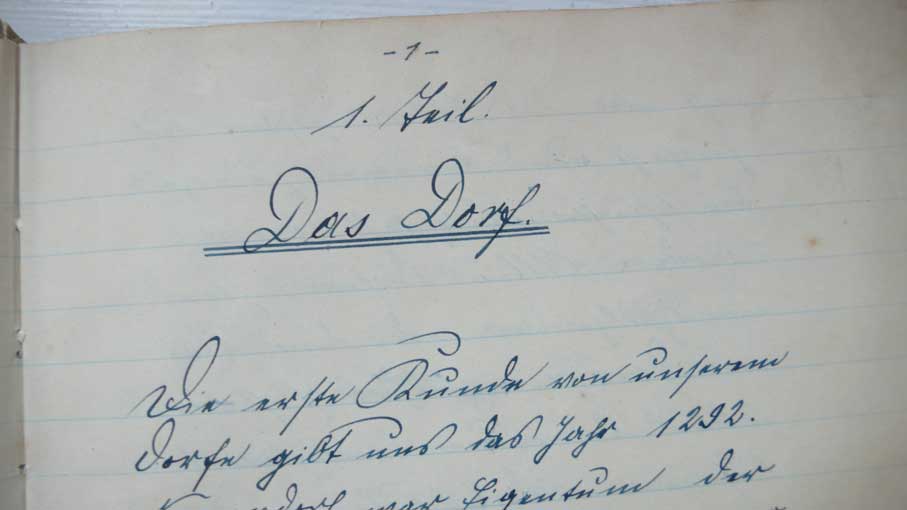 - 1 -
1. Teil.
Das Dorf.
Die erste Kunde von unserem
Dorfe gibt uns das Jahr 1292.
war Eigentum der